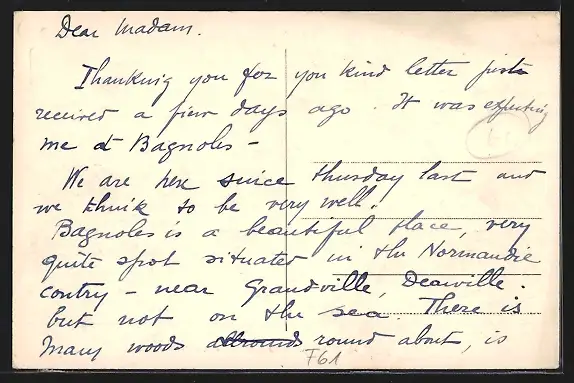 Dear Madam.
Thanking you for you kind letter just
received a fiew days ago. It was expecting
me at Bagnoles -
We are here since thursday last and
we think to be very well.
Bagnoles is a beautiful place, very
quite spot situated in the Normandie
contry - near Grandville, Deauville.
but not on the sea. There is
many woods allrounds round about, is
F61